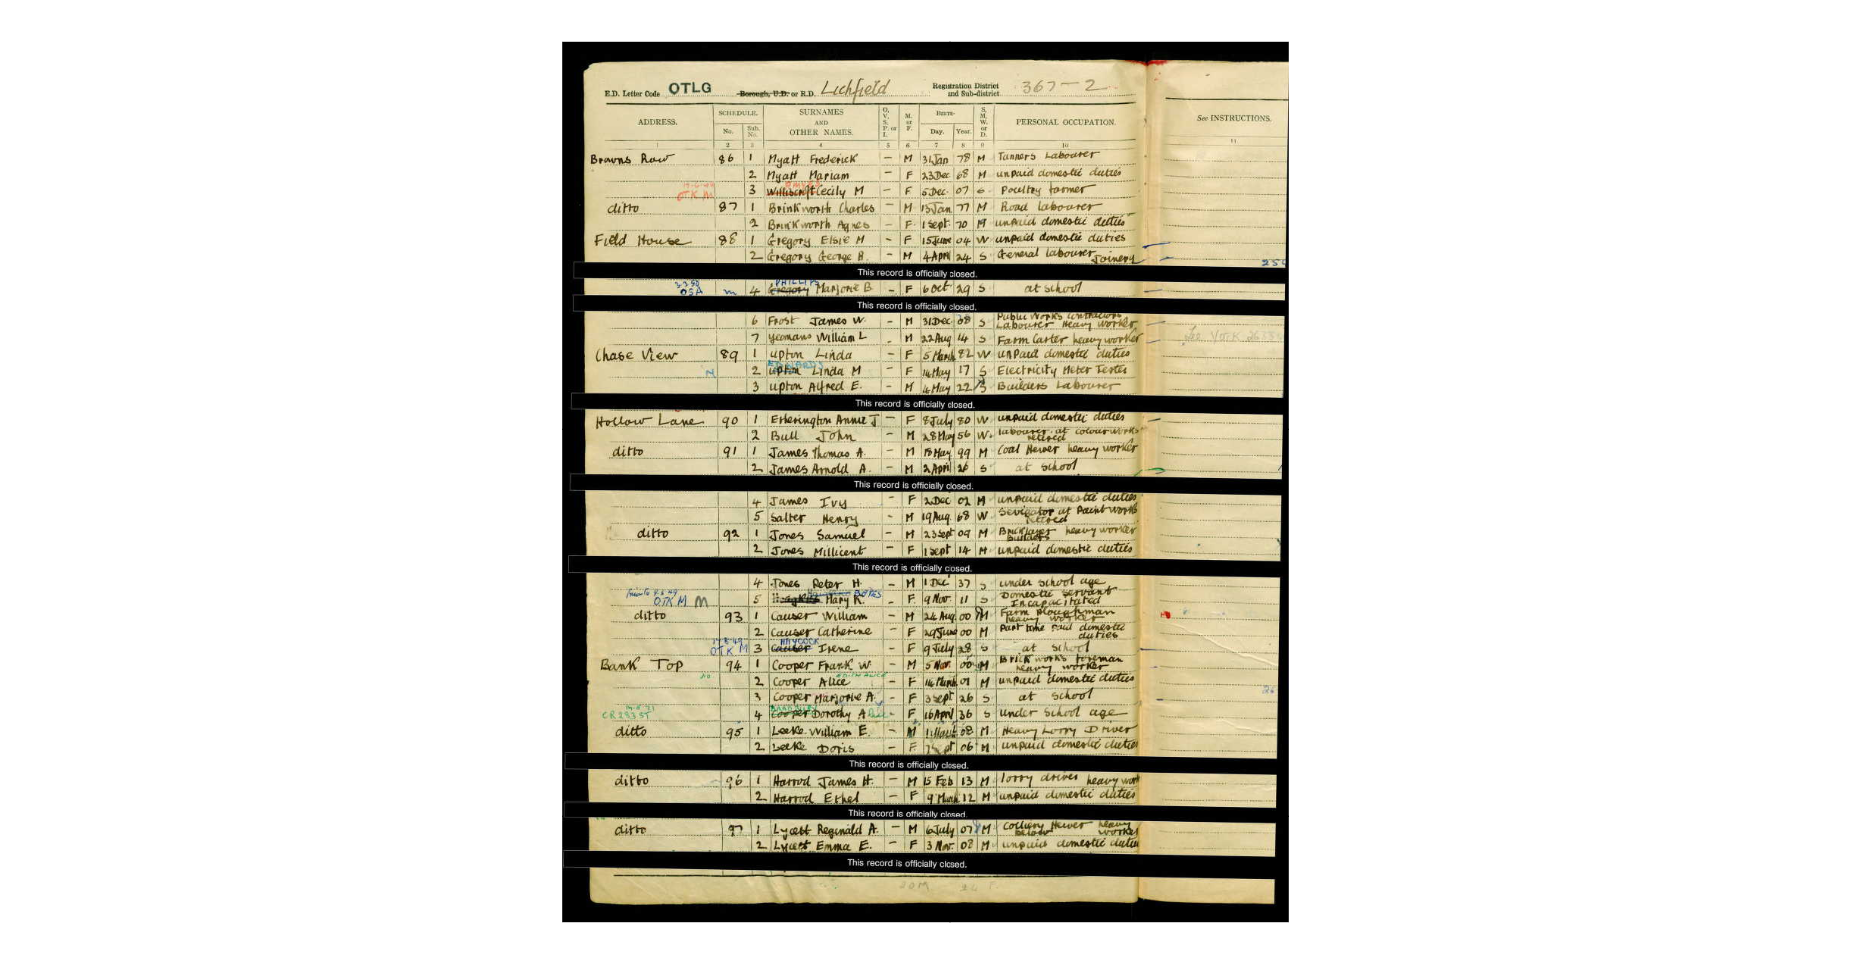 E.D. Letter Code OTLG Borough, U.D. or R.D. Lichfield Registration District and Sub-district 367-2
ADDRESS. SCHEDULE. No. Sub. No. SURNAMES AND OTHER NAMES. O. V. S. P. or I. M. or F. BIRTH- Day. Year. S. M. W. or D. PERSONAL OCCUPATION. See INSTRUCTIONS.
1 2 3 4 5 6 7 8 9 10 11
Browns Row 86 1 Myatt Frederick - M 31 Jan 78 M Tanners Labourer
2 Myatt Mariam - F 23 Dec 68 M unpaid domestic duties
OTK M 3 Cecily M - F 5 Dec 07 S Poultry farmer
ditto 87 1 Brinkworth Charles - M 13 Jan 77 M Road labourer
2 Brinkworth Agnes - F 1 Sept 70 M unpaid domestic duties
Field House 88 1 Gregory Elsie M - F 15 June 04 W unpaid domestic duties
2 Gregory George B. - M 4 April 24 S General labourer Joinery
This record is officially closed.
PHILLIPS
OSA m 4 Gregory Marjorie B - F 6 Oct 29 S at school
This record is officially closed.
6 Frost James W. - M 31 Dec 08 S Public Works contractors Labourer Heavy worker
7 Yeomans William L - M 22 Aug 14 S Farm Carter heavy worker
Chase View 89 1 Upton Linda - F 5 March 82 W unpaid domestic duties
EDWARDS
N 2 Upton Linda M - F 14 May 17 S Electricity Meter Tester
3 Upton Alfred E. - M 4 May 22 S Builders Labourer
This record is officially closed.
Hollow Lane 90 1 Etherington Annie J - F 8 July 80 W unpaid domestic duties
2 Bull John - M 28 May 56 W labourer at colour works retired
ditto 91 1 James Thomas A. - M 18 May 99 M Coal Hewer heavy worker
2 James Arnold A. - M 2 April 26 S at school
This record is officially closed.
4 James Ivy - F 2 Dec 02 M unpaid domestic duties
5 Salter Henry - M 19 Aug 68 W at Paint works retired
ditto 92 1 Jones Samuel - M 23 Sept 09 M Bricklayer heavy worker Builders
2 Jones Millicent - F 1 Sept 14 M unpaid domestic duties
This record is officially closed.
4 Jones Peter H. - M 1 Dec 37 S under school age
OTK M M 5 Mary K. - F 9 Nov. 11 S Domestic Servant Incapacitated
ditto 93 1 Causer William - M 24 Aug 00 M Farm Ploughman heavy worker
2 Causer Catherine F 29 June 00 M Part time paid domestic duties
HAYCOCK
OTK M 3 Causer Irene - F 9 July 28 S at school
Bank Top 94 1 Cooper Frank W - M 5 Nov. 00 M Brick works foreman heavy worker
2 Cooper Alice - F 14 March 01 M unpaid domestic duties
3 Cooper Marjorie A. - F 3 Sept 26 S at school
CR283 ST 4 Cooper Dorothy A - F 16 April 36 S under school age
ditto 95 1 Leeke William E. - M 08 M Heavy Lorry Driver
2 Leeke Doris - F Sept 06 M unpaid domestic duties
This record is officially closed.
ditto 96 1 Harrod James H. - M 15 Feb 13 M lorry driver heavy work
2 Harrod Ethel - F 9 March 12 M unpaid domestic duties
This record is officially closed.
ditto 97 1 Lycett Reginald A. - M 6 July 07 M Colliery Hewer heavy below worker
2 Lycett Emma E. - F 3 Nov. 08 M unpaid domestic duties
This record is officially closed.